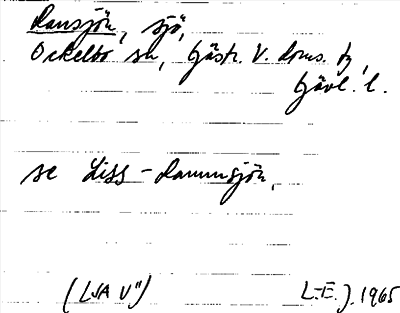 Dansjön, sjö,
Ockelbo sn, Gästr. V. doms. tg,
Gävl. l.
se Liss-Dammsjön,
(LSA V")
L.E.J. 1965